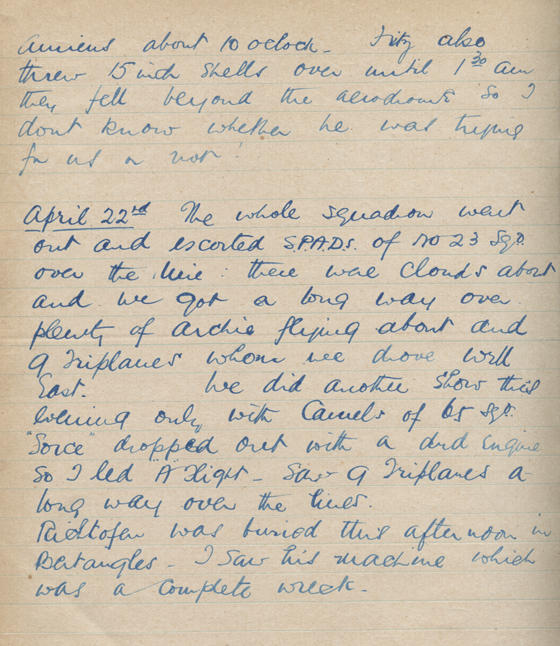 Amiens about 10 oclock - Fritz also
threw 15 inch shells over until 1 30 am
they fell beyond the aerodrome so I
dont know whether he was trying
for us or not!
April 22nd The whole squadron went
out and escorted S.P.A.Ds. of No 23 Sqd.
over the line : there were clouds about
and we got a long way over.
plenty of archie flying about and
9 Triplanes whom we drove well
East. We did another show this
evening only with Camels of 65 Sqd.
dropped out with a dud engine
so I led "A" flight - Saw 9 Triplanes a
long way over the lines.
was buried this afternoon in
Bertangles - I saw his machine which
was a complete wreck -